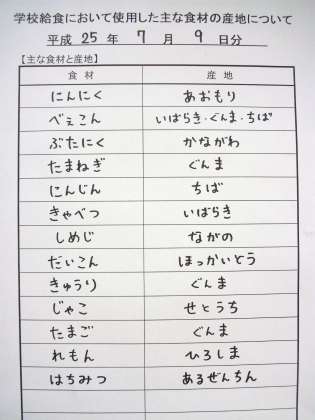 学校給食において使用した主な食材の産地について
平成 25 年 7 月 9 日分
【主な食材と産地】
食材 産地
にんにく あおもり
べぇこん いばらき・ぐんま・ちば
ぶたにく かながわ
たまねぎ ぐんま
にんじん ちば
きゃべつ いばらき
しめじ ながの
だいこん ほっかいどう
きゅうり ぐんま
じゃこ せとうち
たまご ぐんま
れもん ひろしま
はちみつ あるぜんちん